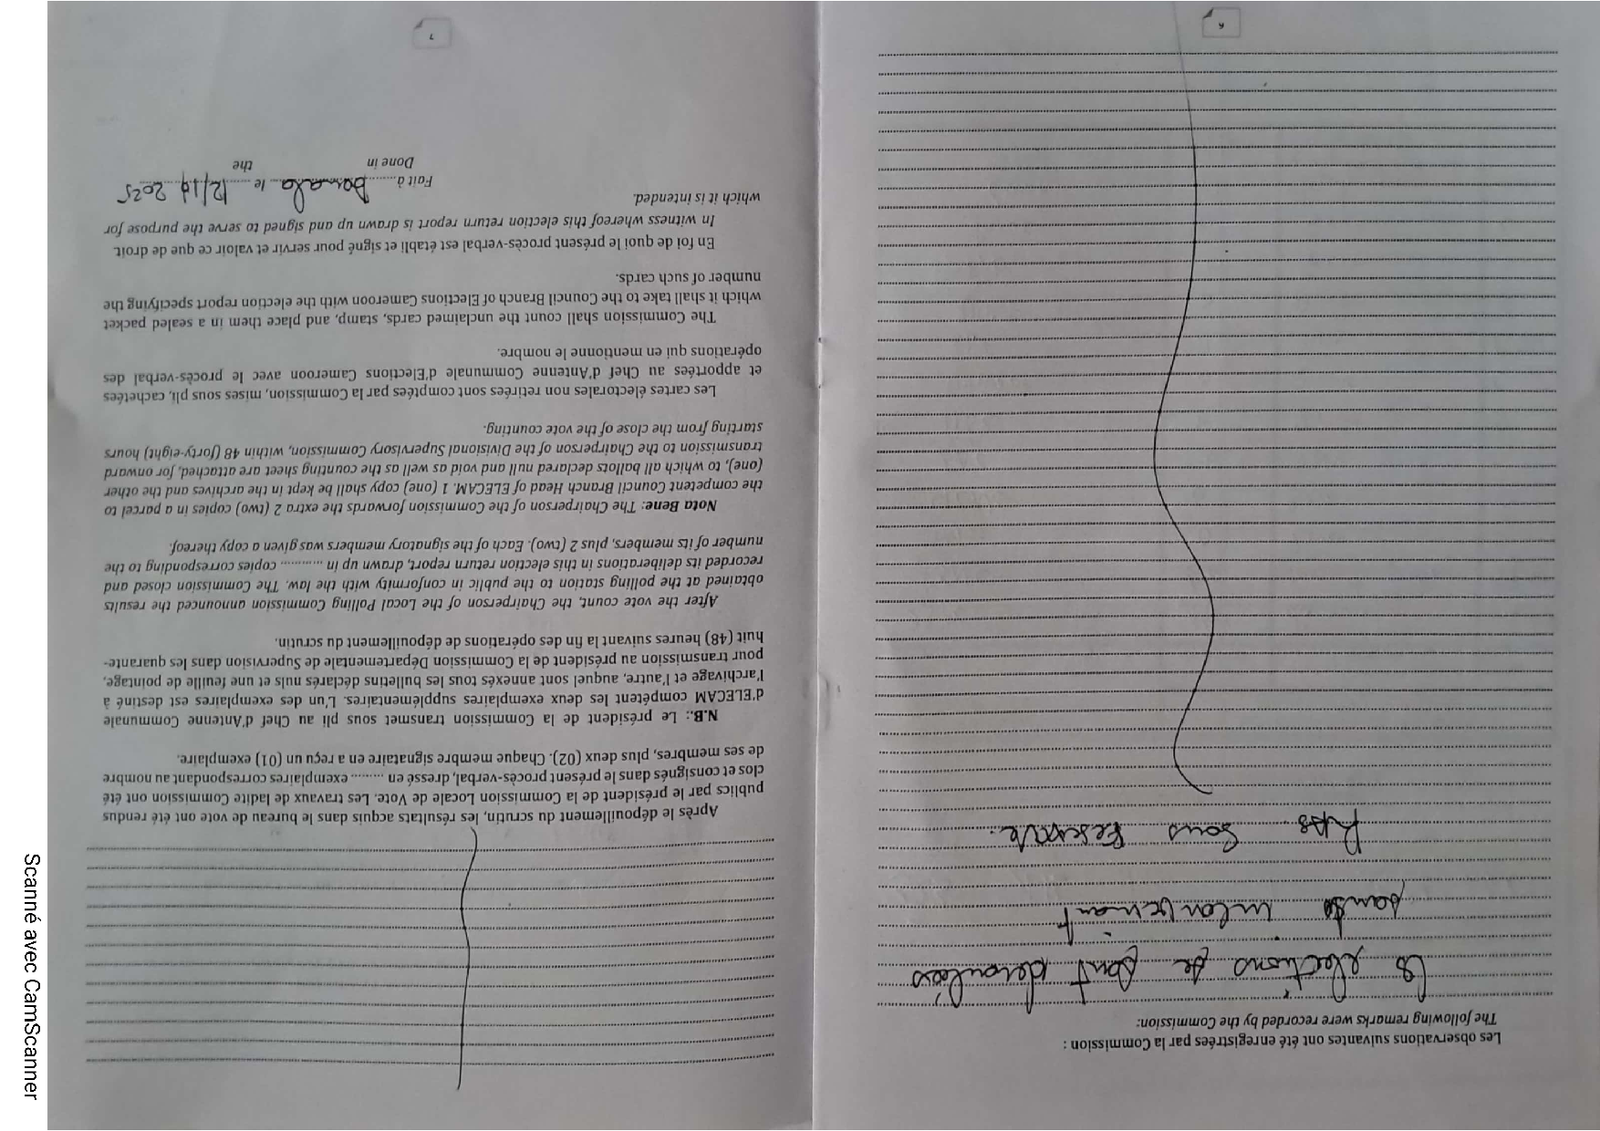 Les observations suivantes ont été enregistrées par la Commission :
The following remarks were recorded by the Commission:
les élections se sont deroulées
sans inconvenient
RAS sous réserve.
6
Après le dépouillement du scrutin, les résultats acquis dans le bureau de vote ont été rendus
publics par le président de la Commission Locale de Vote. Les travaux de ladite Commission ont été
clos et consignés dans le présent procès-verbal, dressé en ......... exemplaires correspondant au nombre
de ses membres, plus deux (02). Chaque membre signataire en a reçu un (01) exemplaire.
N.B.: Le président de la Commission transmet sous pli au Chef d'Antenne Communale
d'ELECAM compétent les deux exemplaires supplémentaires. L'un des exemplaires est destiné à
l'archivage et l'autre, auquel sont annexés tous les bulletins déclarés nuls et une feuille de pointage,
pour transmission au président de la Commission Départementale de Supervision dans les quarante-
huit (48) heures suivant la fin des opérations de dépouillement du scrutin.
After the vote count, the Chairperson of the Local Polling Commission announced the results
obtained at the polling station to the public in conformity with the law. The Commission closed and
recorded its deliberations in this election return report, drawn up in ............ copies corresponding to the
number of its members, plus 2 (two). Each of the signatory members was given a copy thereof.
Nota Bene: The Chairperson of the Commission forwards the extra 2 (two) copies in a parcel to
the competent Council Branch Head of ELECAM. 1 (one) copy shall be kept in the archives and the other
(one), to which all ballots declared null and void as well as the counting sheet are attached, for onward
transmission to the Chairperson of the Divisional Supervisory Commission, within 48 (forty-eight) hours
starting from the close of the vote counting.
Les cartes électorales non retirées sont comptées par la Commission, mises sous pli, cachetées
et apportées au Chef d'Antenne Communale d'Elections Cameroon avec le procès-verbal des
opérations qui en mentionne le nombre.
The Commission shall count the unclaimed cards, stamp, and place them in a sealed packet
which it shall take to the Council Branch of Elections Cameroon with the election report specifying the
number of such cards.
En foi de quoi le présent procès-verbal est établi et signé pour servir et valoir ce que de droit.
In witness whereof this election return report is drawn up and signed to serve the purpose for
which it is intended.
Fait à le 2025
Done in the
7
Scanné avec CamScanner